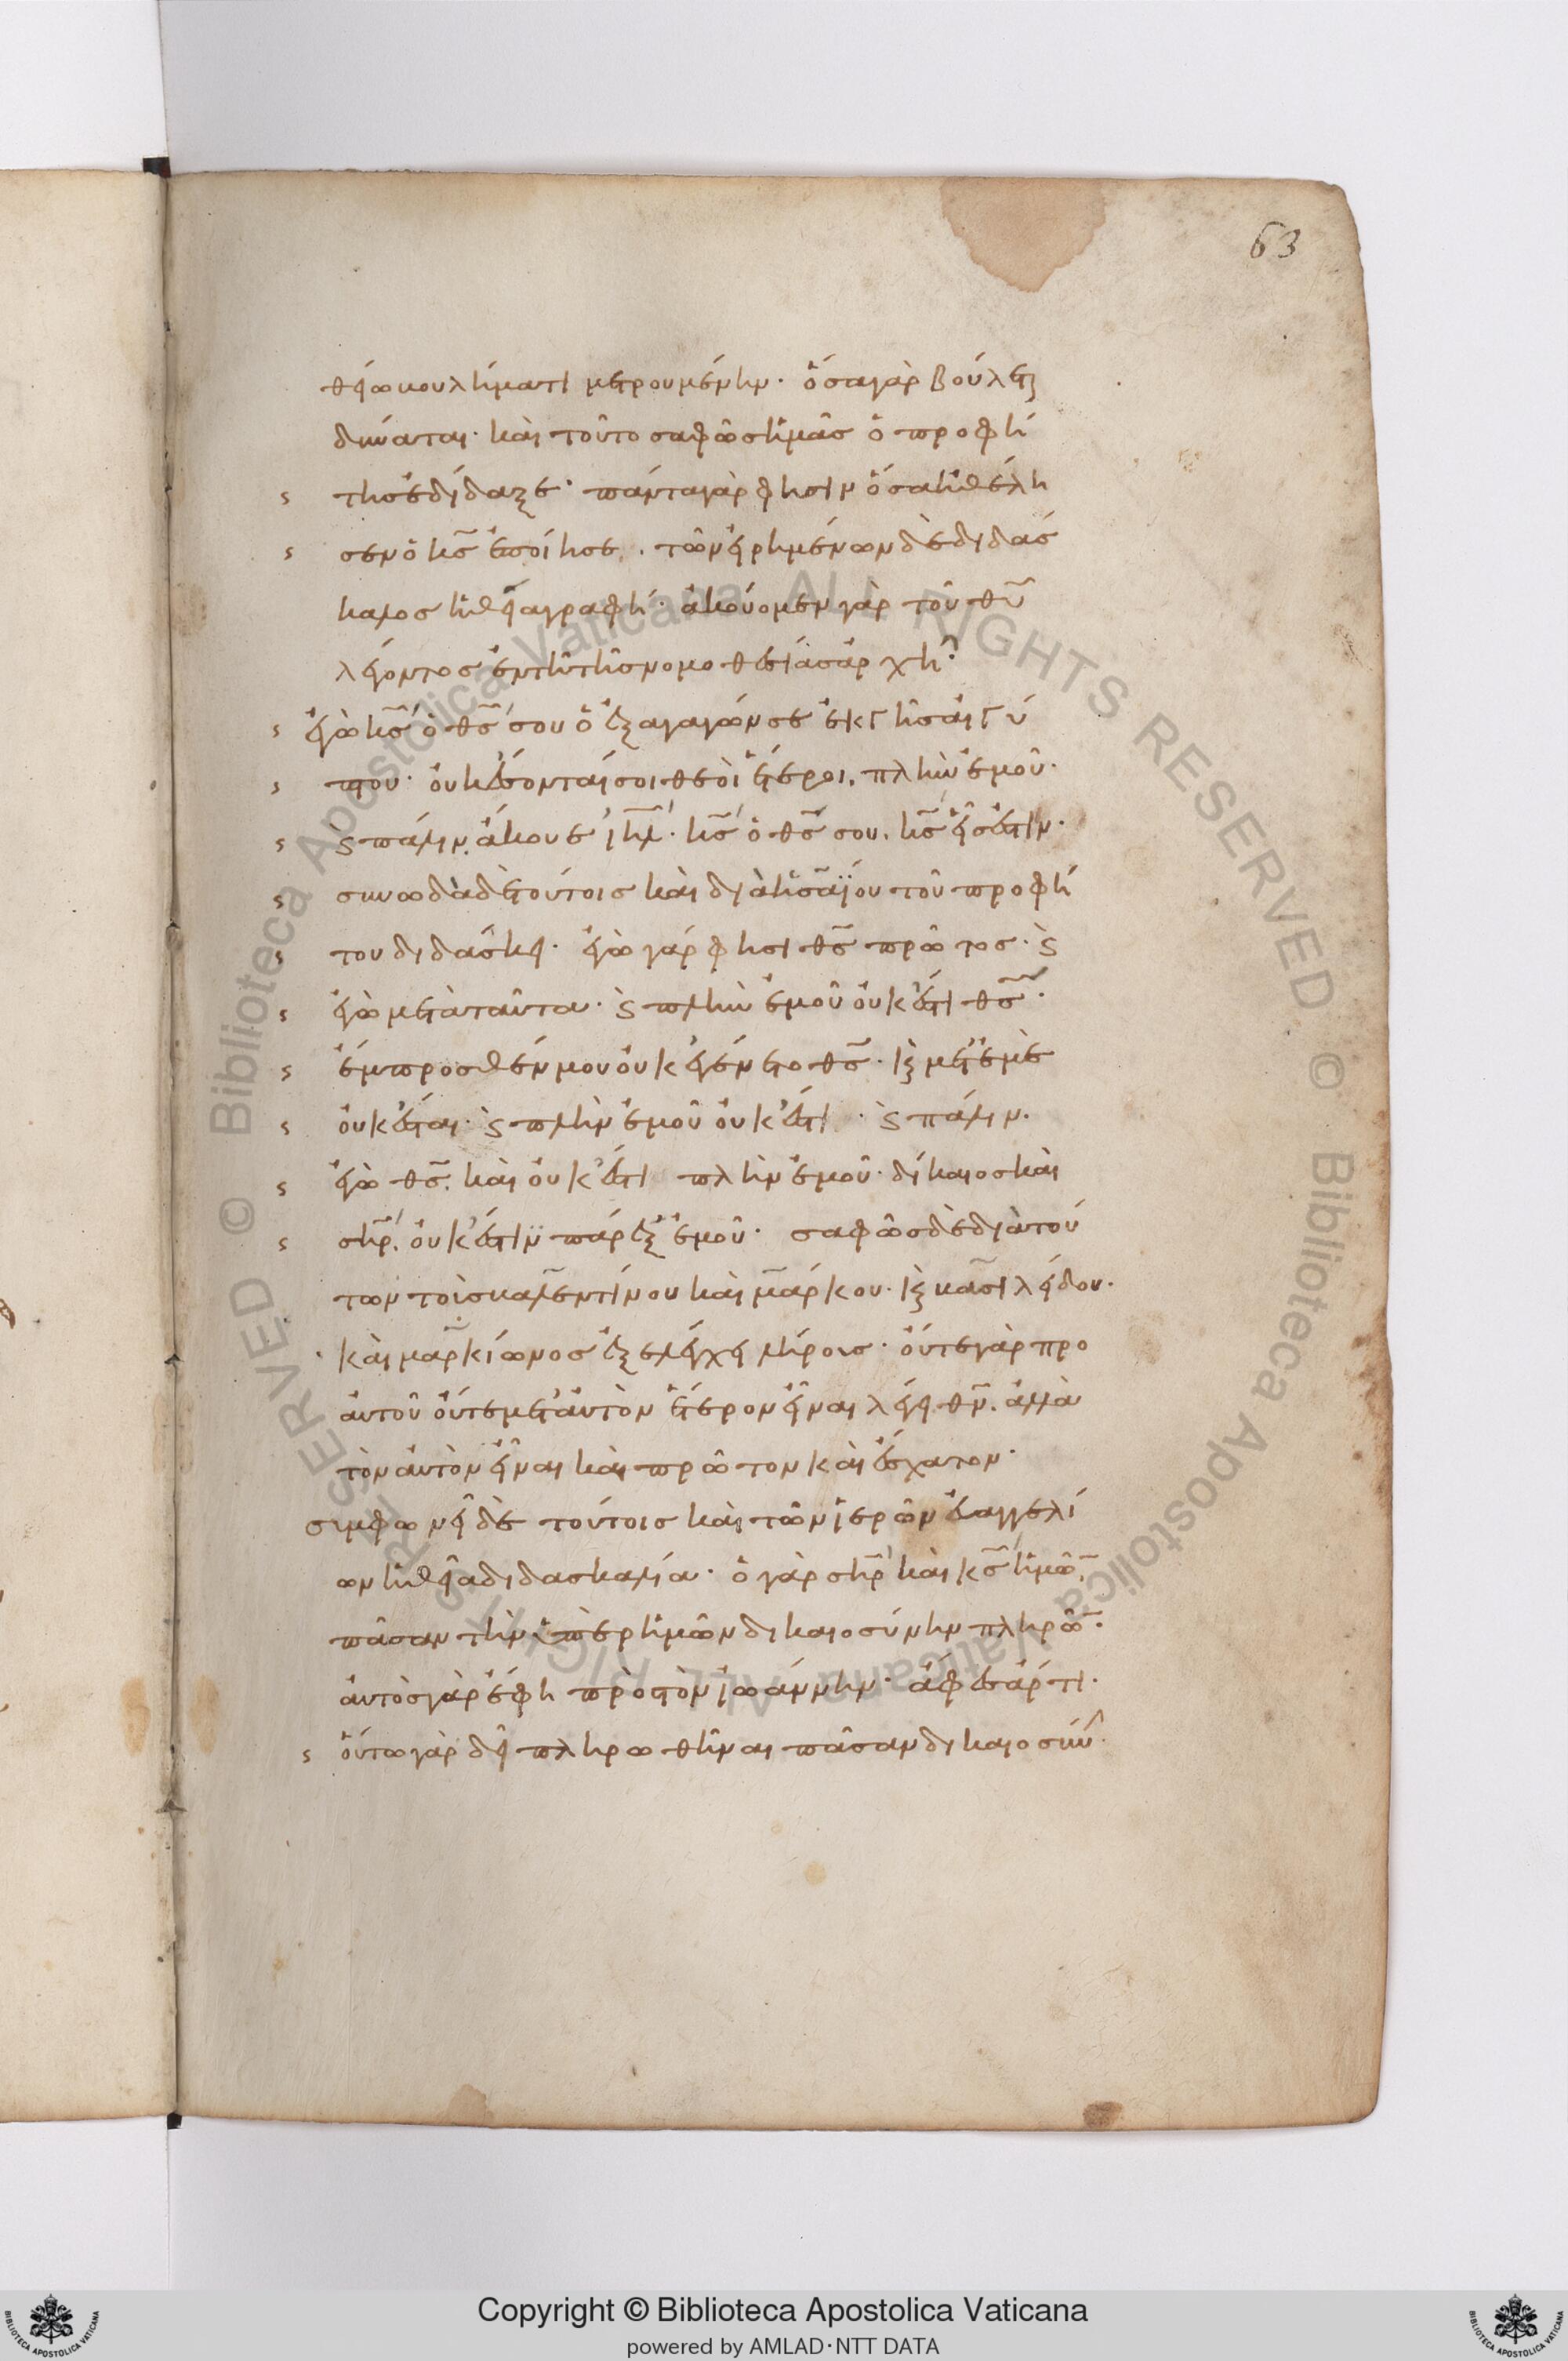 63
θείω βουλήματι μετρουμένην· ὅσα γὰρ βούλεται
δύναται· καὶ τοῦτο σαφῶς ἡμᾶς ὁ προφή
της ἐδίδαξε· πάντα γάρ φησιν ὅσα ἠθέλη
σεν ὁ κ̅ς̅ ἐποίησε. τῶν εἰρημένων δὲ διδάσ
καλος ἡ θεία γραφή· ἀκούομεν γὰρ τοῦ θ̅υ̅
λέγοντος ἐν τῆ τῆς νομοθεσίας ἀρχῆ·
ἐγὼ κ̅ς̅ ὁ θ̅ς̅ σου ὁ ἐξαγαγών σε ἐκ γῆς αἰγύ
πτου· οὐκ ἔσονταί σοι θεοὶ ἕτεροι, πλὴν ἐμοῦ·
ϗ πάλιν, ἄκουε ι̅η̅λ̅· κ̅ς̅ ὁ θ̅ς̅ σου, κ̅ς̅ εἷς ἐστιν·
συνωδὰ δὲ τούτοις καὶ διὰ ἡσαΐου τοῦ προφή
του διδάσκει· ἐγὼ γάρ φησι θ̅ς̅ πρῶτος· ϗ
ἐγὼ μετὰ ταῦτα· ϗ πλὴν ἐμοῦ οὐκ ἔστι θ̅ς̅·
ἔμπροσθέν μου οὐκ ἐγένετο θ̅ς̅· ϗ μετ' ἐμὲ
οὐκ ἔσται· ϗ πλὴν ἐμοῦ οὐκ ἔστι· ϗ πάλιν·
ἐγὼ θ̅ς̅, καὶ οὐκ ἔστι πλὴν ἐμοῦ· δίκαιος καὶ
σ̅η̅ρ̅, οὐκ ἔστιν πάρεξ ἐμοῦ· σαφῶς δὲ διὰ τού
των τοὺς βαλεντίνου καὶ μάρκου· ϗ βασιλείδου·
καὶ μαρκίωνος ἐξελέγχει λήρους· οὔτε γὰρ προ
αὐτοῦ οὔτε μετ' αὐτὸν ἕτερον εἶναι λέγει θ̅ν̅, ἀλλὰ
τὸν αὐτὸν εἶναι καὶ πρῶτον καὶ ἔσχατον·
συμφωνεῖ δὲ τούτοις καὶ τῶν ἱερῶν εὐαγγελί
ων ἡ θεία διδασκαλία· ὁ γὰρ σ̅η̅ρ̅ καὶ κ̅ς̅ ἡμῶν,
πᾶσαν τὴν ὑπὲρ ἡμῶν δικαιοσύνην πληρῶν·
αὐτὸς γὰρ ἔφη πρὸς τὸν ἰωάννην· ἄφες ἄρτι·
οὕτω γὰρ δεῖ πληρωθῆναι πᾶσαν δικαιοσύνην·
Copyright © Biblioteca Apostolica Vaticana
powered by AMLAD·NTT DATA
© Biblioteca Apostolica Vaticana ALL RIGHTS RESERVED
© Biblioteca Apostolica Vaticana ALL RIGHTS RESERVED